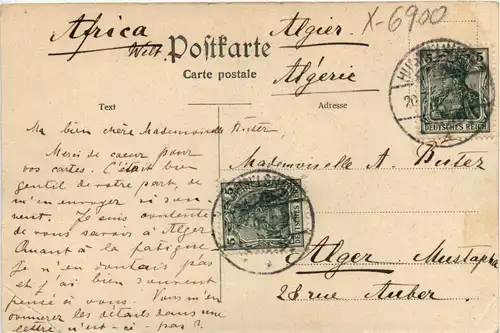 Africa
Algier
X-6900
Postkarte
Carte postale
Algérie
Text
Adresse
Ma bien chère Mademoiselle Buter,
Merci de coeur pour
vos cartes. C'était bien
gentil de votre part, de
m'en envoyer si sou-
vent. Je suis contente
de vous savoir à Alger
Quant à la fatigue
Je n'en doutais pas
et j'ai bien souvent
pensé à vous. Vous m'en
donnerez les détails dans une
lettre, n'est-ce pas?
Mademoiselle A. Buter
Alger Mustapha
28 rue Auber
5 5
DEUTSCHES REICH
20
5 5